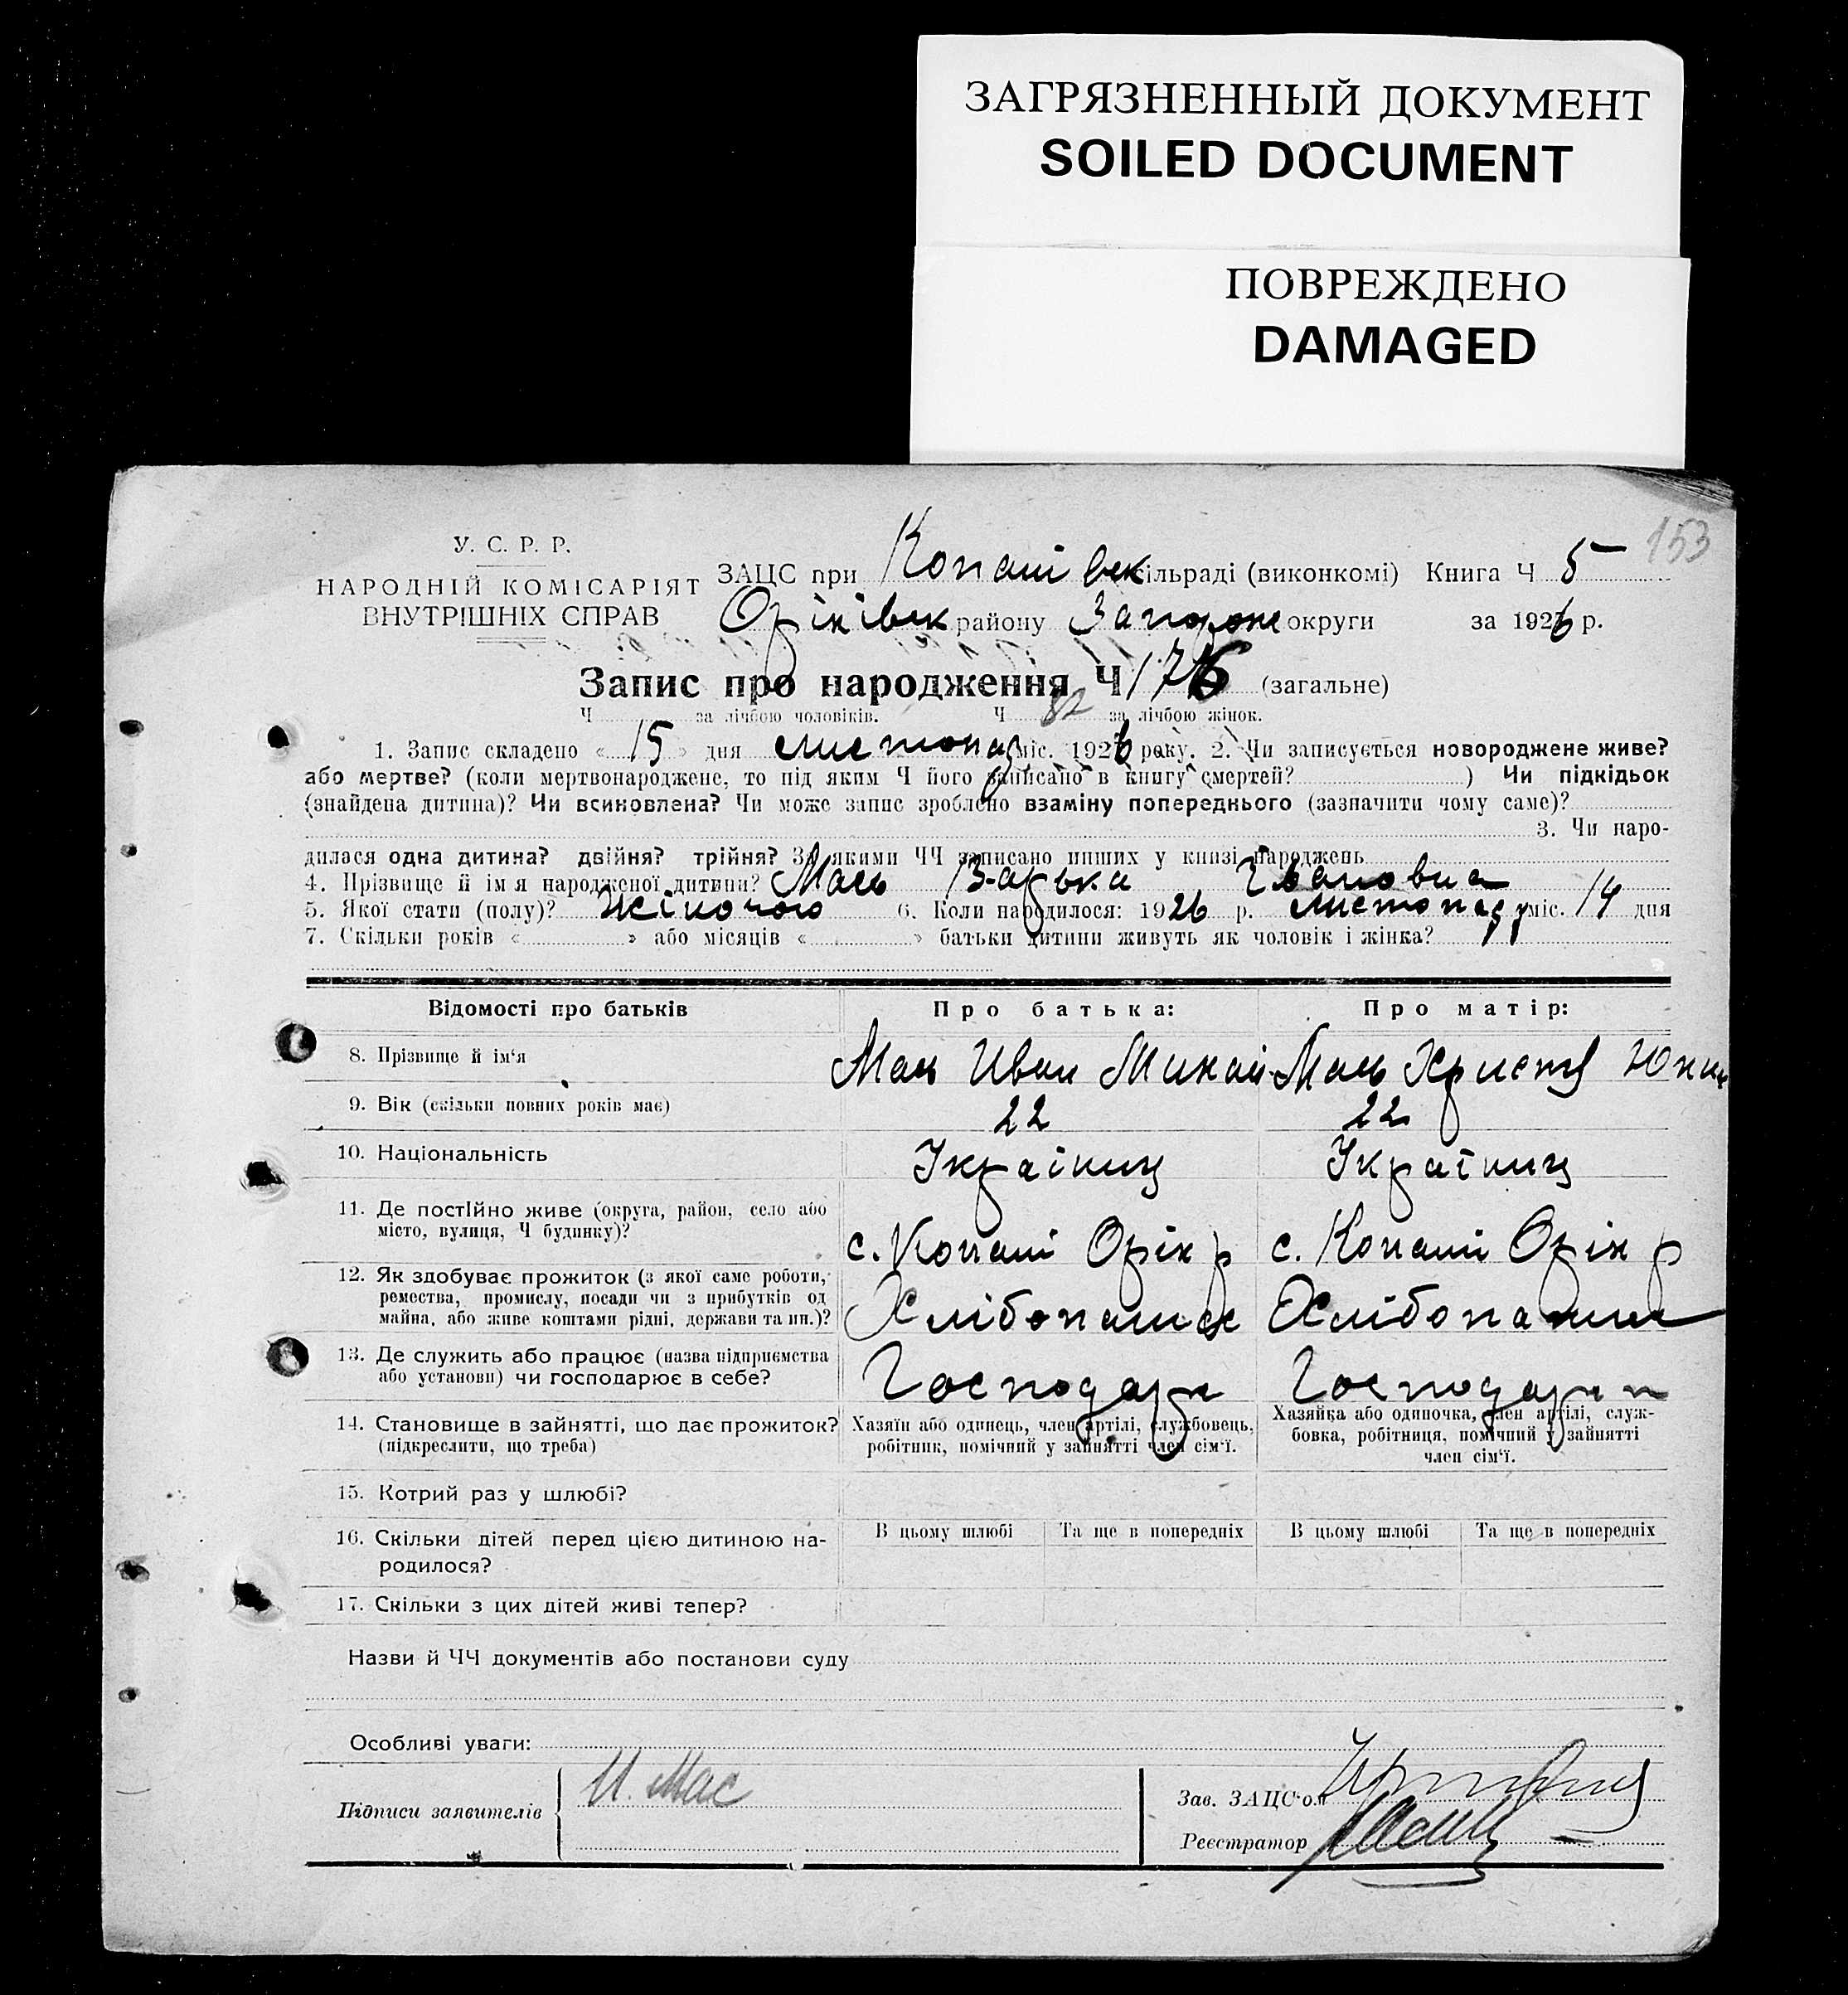 ЗАГРЯЗНЕННЫЙ ДОКУМЕНТ
SOILED DOCUMENT
ПОВРЕЖДЕНО
DAMAGED
153
У. С. Р. Р.
НАРОДНІЙ КОМІСАРІЯТ
ВНУТРІШНІХ СПРАВ
ЗАЦС при Копанівек сільраді (виконкомі) Книга Ч 5
Орінівек району Запорож округи за 1926 р.
Запис про народження Ч 176 (загальне)
Ч за лічбою чоловіків. Ч 82 за лічбою жінок.
1. Запис складено « 15 » дня листопад міс. 1926 року. 2. Чи записується новороджене живе?
або мертве? (коли мертвонароджене, то під яким Ч його записано в книгу смертей? ) Чи підкідьок
(знайдена дитина)? Чи всиновлена? Чи може запис зроблено взаміну попереднього (зазначити чому саме)?
3. Чи наро-
дилася одна дитина? двійня? трійня? За якими ЧЧ записано инших у книзі народжень
4. Прізвище й імя народженої дитини? Мась Івановна
5. Якої стати (полу)? Жіночого 6. Коли народилося: 1926 р. листопаду міс. 14 дня
7. Скільки років « » або місяців « » батьки дитини живуть як чоловік і жінка?
Відомості про батьків Про батька: Про матір:
8. Прізвище й ім‘я Мась Иван Михай Мась Христя
9. Вік (скільки повних років має) 22 22
10. Національність Українц Українц
11. Де постійно живе (округа, район, село або
місто, вулиця, Ч будинку)? с. Копані Оріх р с. Копані Оріх р
12. Як здобуває прожиток (з якої саме роботи,
ремества, промислу, посади чи з прибутків од
майна, або живе коштами рідні, держави та ин.)? Хлібопашес Хлібопаше
13. Де служить або працює (назва підприємства
або установи) чи господарює в себе? Господари Господари
14. Становище в зайнятті, що дає прожиток?
(підкреслити, що треба)
Хазяїн або одинець, член артілі, службовець,
робітник, помічний у зайнятті член сім‘ї.
Хазяйка або одиночка, член артілі, служ-
бовка, робітниця, помічний у зайнятті
член сім‘ї.
15. Котрий раз у шлюбі?
16. Скільки дітей перед цією дитиною на-
родилося?
В цьому шлюбі Та ще в попередніх В цьому шлюбі Та ще в попередніх
17. Скільки з цих дітей живі тепер?
Назви й ЧЧ документів або постанови суду
Особливі уваги:
Підписи заявителів И. Мас
Зав. ЗАЦС‘ом
Реєстратор